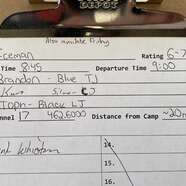 DEPOT
Also available Friday
Iceman Rating 6-7
Time 8:45 Departure Time 9:00
Brandon - Blue TJ
Kurt Silver CJ
Toph - Black LJ
nnel 17 462.6000 Distance from Camp ~20m
14.
15.
16.